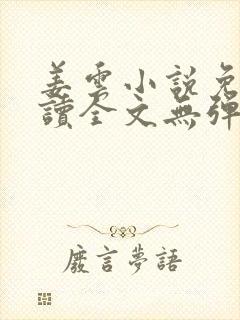 姜雲小說免
讀全文無彈
廢言夢語